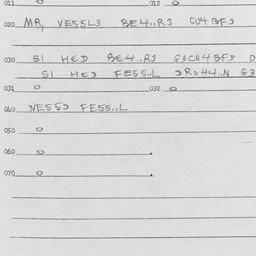 011 012
020 MR, VESSL3 BE4..R3 CU4 BFD
030 SI HED BE4..R3 G3CU4BFD D
SI HED FESS..L DRO44..N G3
031 032
040 NESSD FESS..L
050
060
070